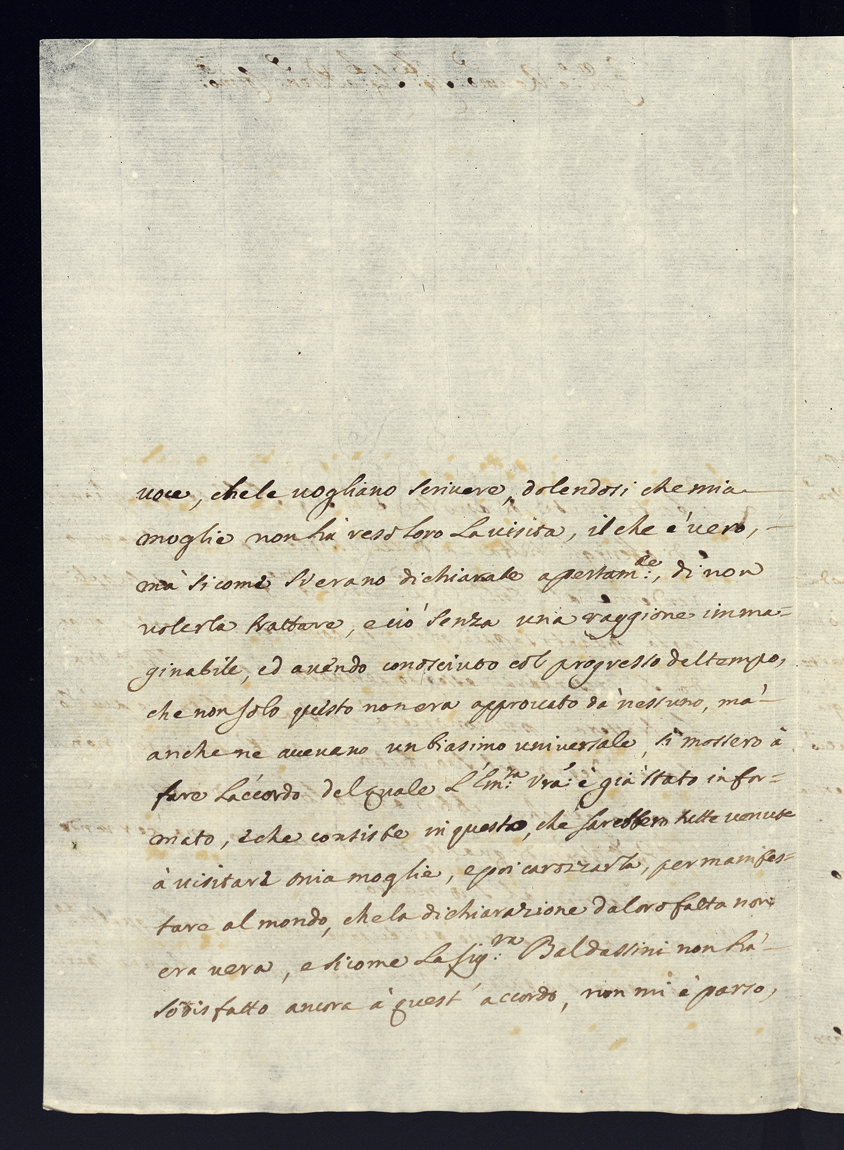 voce, che le vogliano scrivere, dolendosi che mia
moglie non hà reso loro La visita, il che e' vero,
mà sicome s'erano dichiarate apertam:te, di non
volerla trattare, e ciò senza una raggione imma-
ginabile, ed avendo conosciuto col progresso del tempo,
che non solo questo non era approvato dà nessuno, mà
anche ne avevano un biasimo universale, si mossero à
fare L'accordo del quale L'Em:za Vra: è già stato infor-
mato, e che consiste in questo, che sarebbero tutte venute
à visitare mia moglie, e poi carozzarla, per manifes-
tare al mondo, che la dichiarazione da loro fatta non
era vera, e sicome La Sig:ra Baldassini non hà
sodisfatto ancora à quest' accordo, non mi è parso,